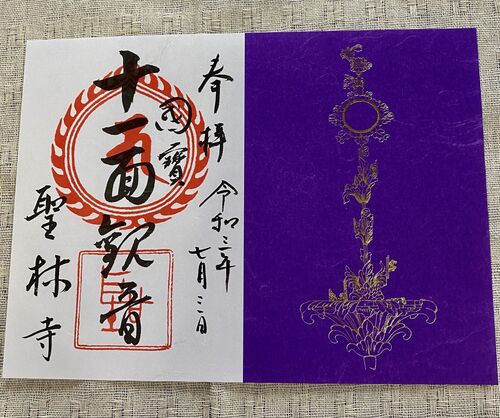 奉拝
令和三年
七月三日
國寶
十一面観音
聖林寺